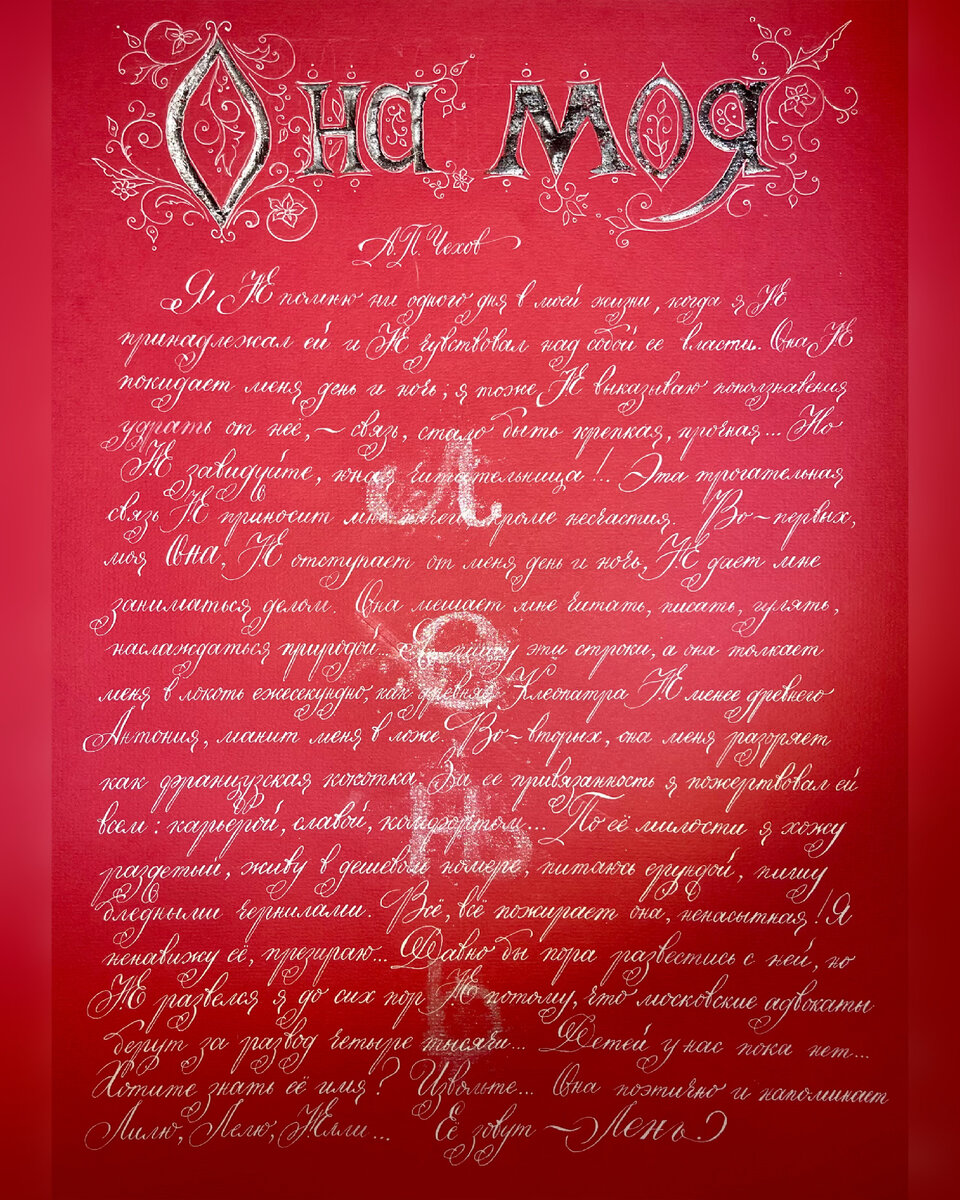 Она моя
А.П. Чехов
Я НЕ помню ни одного дня в моей жизни, когда я НЕ
принадлежал ей и НЕ чувствовал над собой ее власти. Она НЕ
покидает меня день и ночь; я тоже НЕ выказываю поползнавения
удрать от нее, – связь, стало быть крепкая, прочная... Но
НЕ завидуйте, юная читательница!.. Эта трогательная
связь НЕ приносит мне ничего кроме несчастия. Во-первых,
моя Она, НЕ отступает от меня день и ночь, НЕ дает мне
заниматься делом. Она мешает мне читать, писать, гулять,
наслаждаться природой. Я пишу эти строки, а она толкает
меня в локоть ежесекундно, как древняя Клеопатра НЕ менее древнего
Антония, манит меня в ложе. Во-вторых, она меня разоряет
как французская кокотка. За ее привязанность я пожертвовал ей
всем: карьерой, славой, комфортом... По её милости я хожу
раздетый, живу в дешевом номере, питаюсь ерундой, пишу
бледными чернилами. Всё, всё пожирает она, ненасытная! Я
ненавижу её, презираю... Давно бы пора развестись с ней, но
НЕ развелся я до сих пор НЕ потому, что московские адвокаты
берут за развод четыре тысячи... Детей у нас пока нет...
Хотите знать её имя? Извольте... Она поэтично и напоминает
Лилю, Лелю, НЕлли... Её зовут – Лень.
Л
Е
Н
Ь